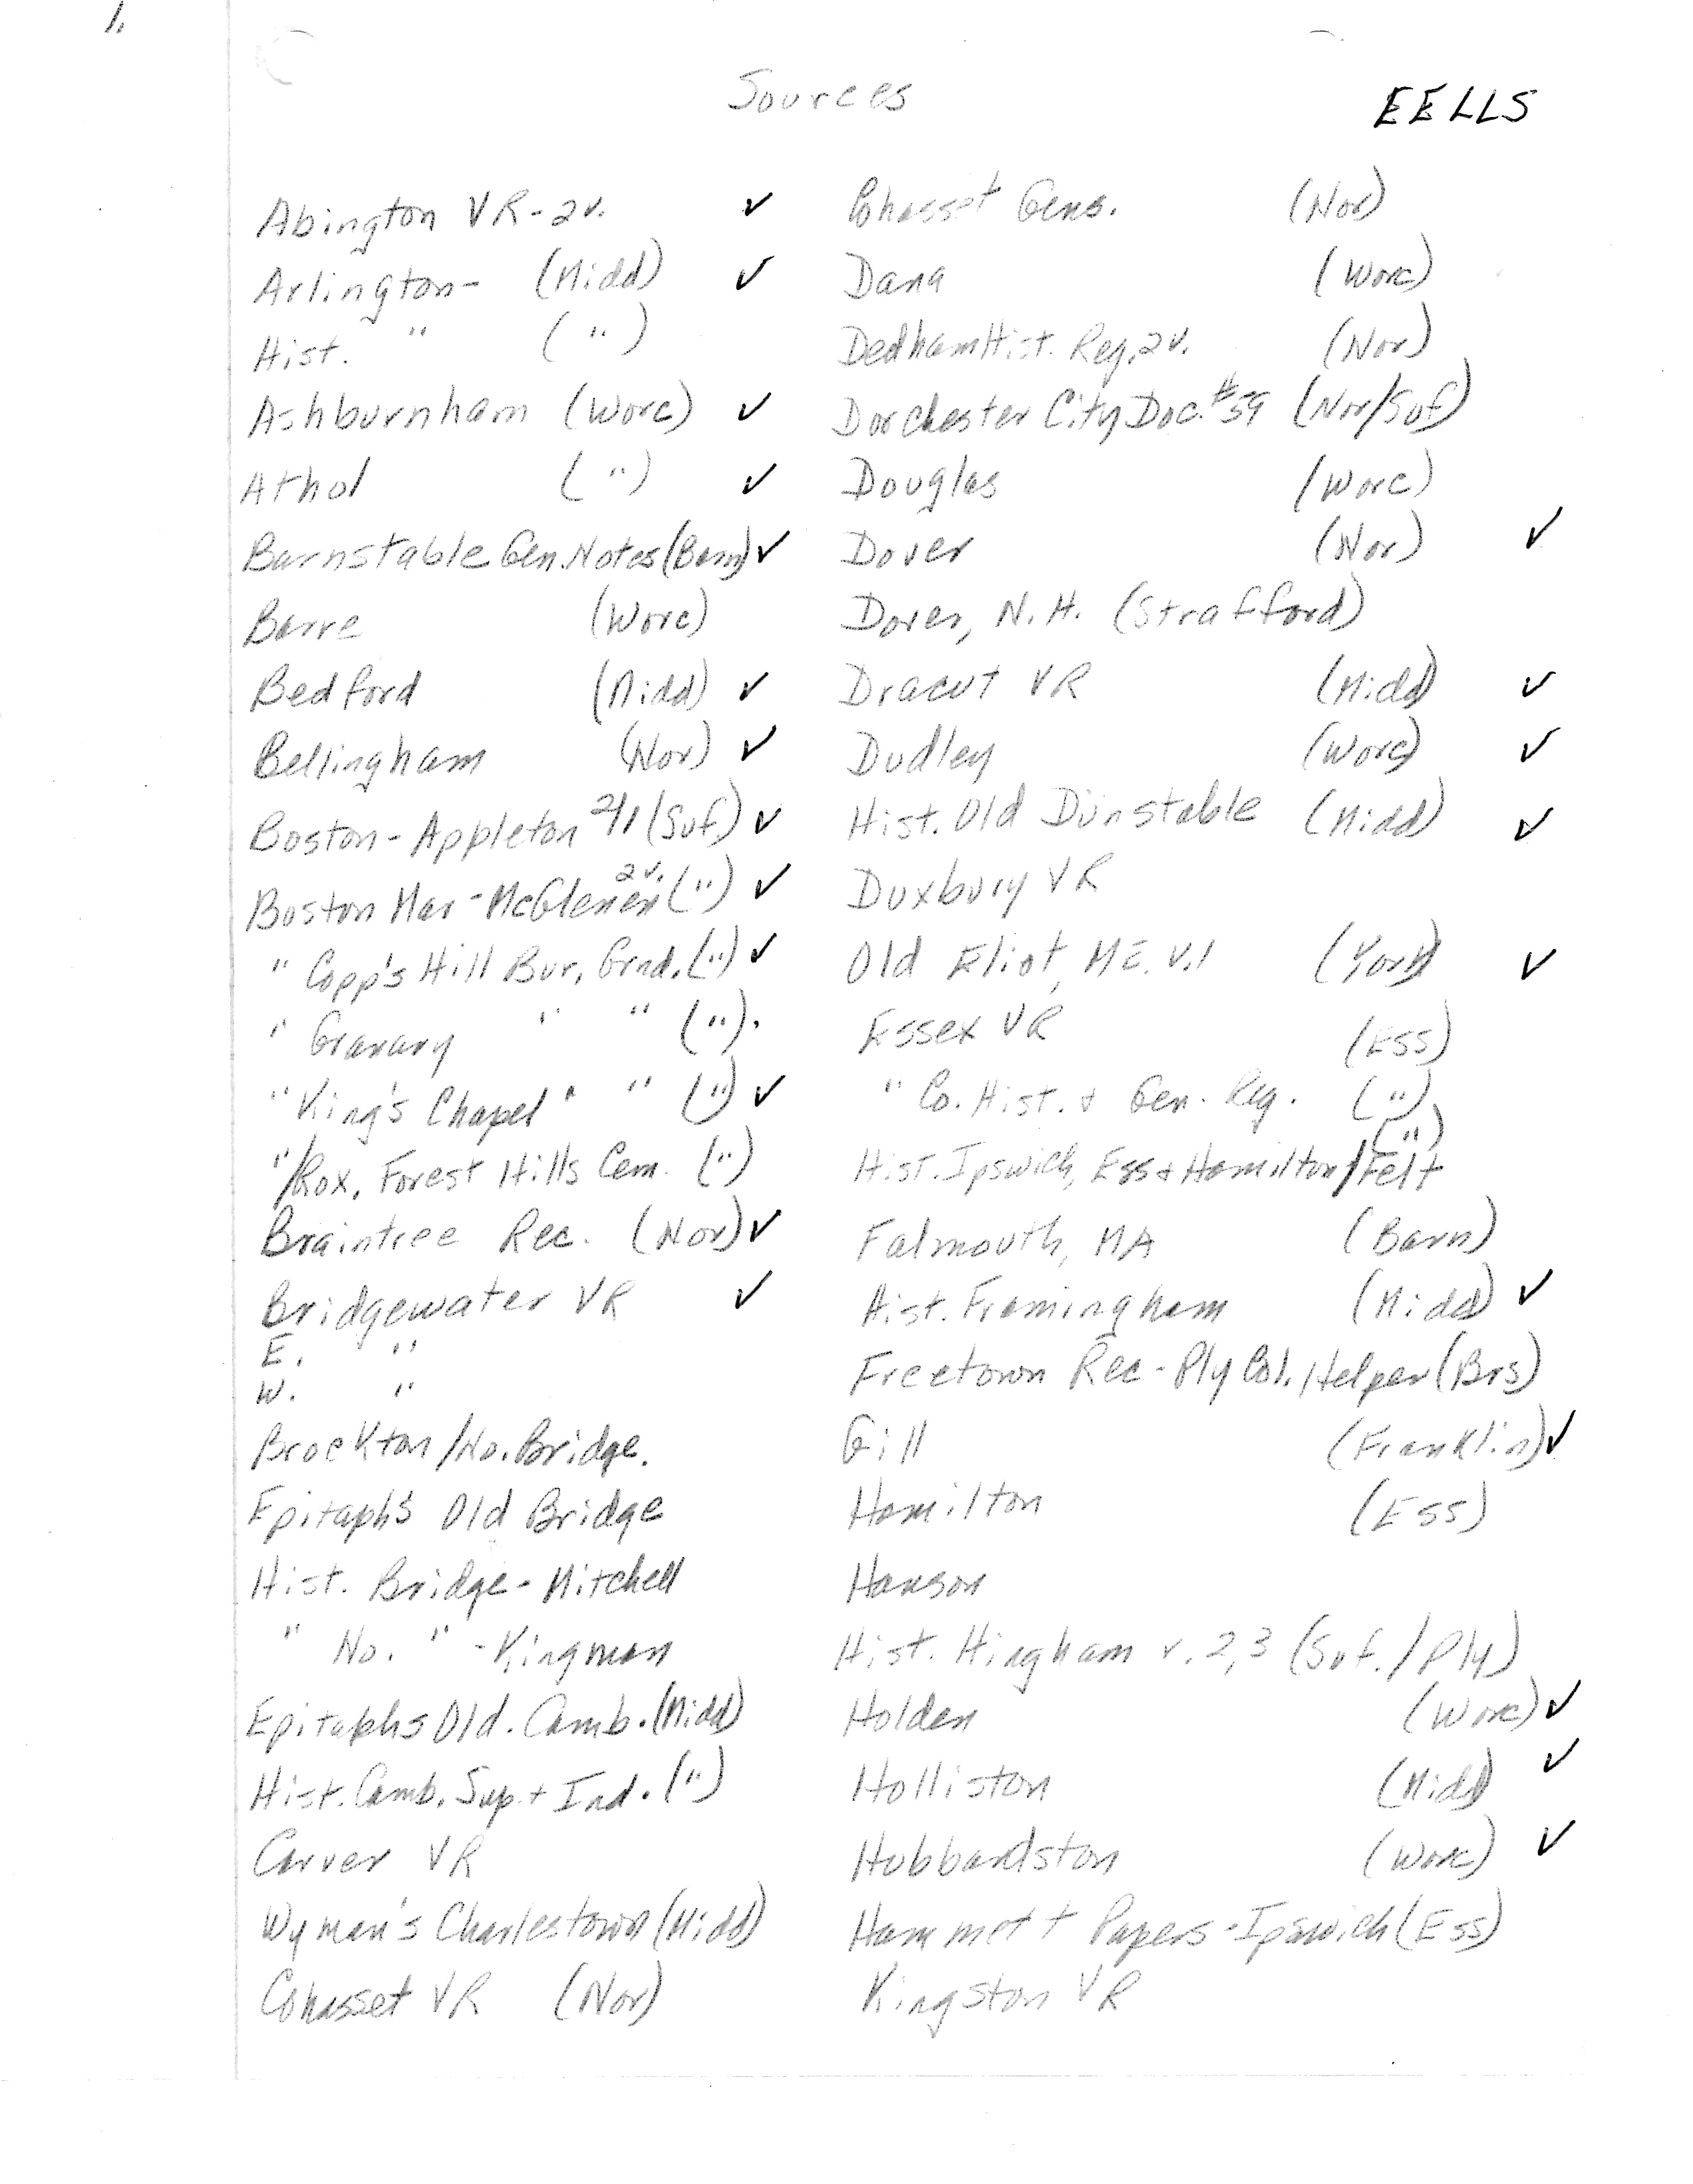 1.
Sources
EELLS
Abington VR-2v. ✓
Arlington- (Midd) ✓
Hist. " (")
Ashburnham (Worc) ✓
Athol (") ✓
Barnstable Gen. Notes (Barn) ✓
Barre (Worc)
Bedford (Midd) ✓
Bellingham (Nor) ✓
Boston - Appleton (Suf.) ✓
Boston Mar - McGlenen 2v. (") ✓
" Copp's Hill Bur. Grnd. (") ✓
" Granary " " (").
" King's Chapel " " (") ✓
"/Rox. Forest Hills Cem. (")
Braintree Rec. (Nor) ✓
Bridgewater VR ✓
E. "
W. "
Brockton/No. Bridge.
Epitaphs Old Bridge
Hist. Bridge - Mitchell
" No. " - Kingman
Epitaphs Old. Camb. (Midd)
Hist. Camb. Sup + Ind. (")
Carver VR
Wyman's Charlestown (Midd)
Cohasset VR (Nor)
Cohasset Gens. (Nor)
Dana (Worc)
Dedham Hist. Reg. 2v. (Nor)
Dorchester City Doc. #59 (Nor/Suf)
Douglas (Worc)
Dover (Nor) ✓
Dover, N.H. (Strafford)
Dracut VR (Midd) ✓
Dudley (Worc) ✓
Hist. Old Dunstable (Midd) ✓
Duxbury VR
Old Eliot, ME. V.1 (York) ✓
Essex VR (Ess)
" Co. Hist. + Gen. Reg. (")
Hist. Ipswich, Ess + Hamilton/Felt (")
Falmouth, MA (Barn)
Hist. Framingham (Midd) ✓
Freetown Rec - Ply Col. Helper (Brs)
Gill (Franklin) ✓
Hamilton (Ess)
Hanson
Hist. Hingham v. 2,3 (Suf./Ply)
Holden (Worc) ✓
Holliston (Midd) ✓
Hubbardston (Worc) ✓
Hammett Papers - Ipswich (Ess)
Kingston VR